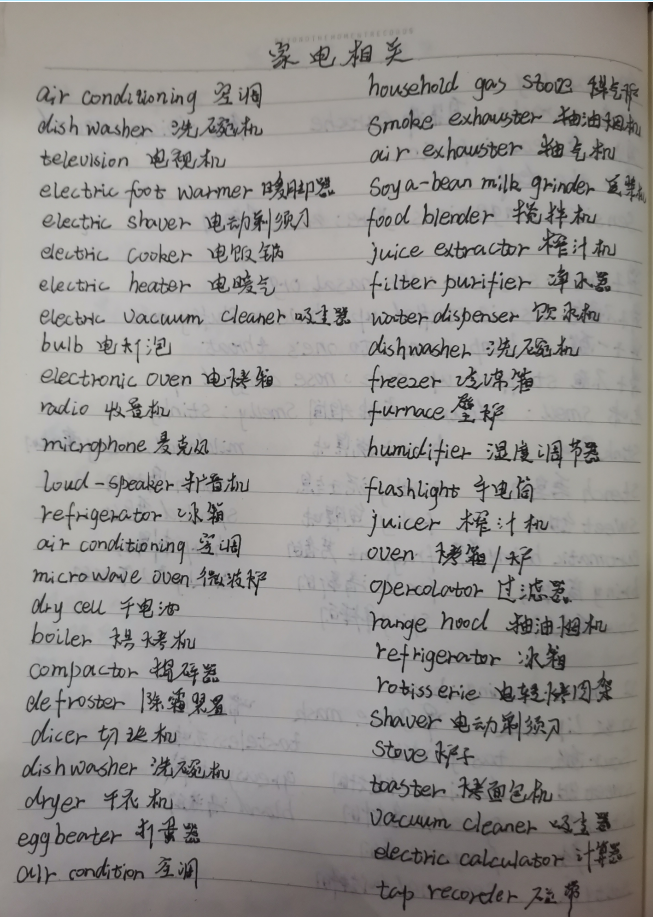 家电相关
air conditioning 空调
dish washer 洗碗机
television 电视机
electric foot warmer 暖脚器
electric shaver 电动剃须刀
electric cooker 电饭锅
electric heater 电暖气
electric vacuum cleaner 吸尘器
bulb 电灯泡
electronic oven 电烤箱
radio 收音机
microphone 麦克风
loud-speaker 扩音机
refrigerator 冰箱
air conditioning 空调
microwave oven 微波炉
dry cell 干电池
boiler 烘烤机
compactor 捣碎器
defroster 除霜装置
dicer 切块机
dishwasher 洗碗机
dryer 干衣机
eggbeater 打蛋器
air condition 空调
household gas stove 煤气炉
smoke exhauster 抽油烟机
air exhauster 抽气机
soya-bean milk grinder 豆浆机
food blender 搅拌机
juice extractor 榨汁机
filter purifier 净水器
water dispenser 饮水机
dishwasher 洗碗机
freezer 冷冻箱
furnace 壁炉
humidifier 湿度调节器
flashlight 手电筒
juicer 榨汁机
oven 烤箱/炉
opercolator 过滤器
range hood 抽油烟机
refrigerator 冰箱
rotisserie 电转烤肉架
shaver 电动剃须刀
stove 炉子
toaster 烤面包机
vacuum cleaner 吸尘器
electric calculator 计算器
tap recorder 磁带